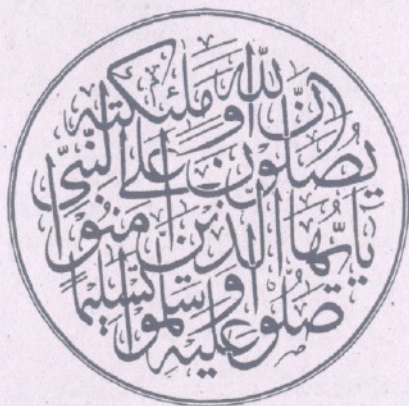 إن الله وملئكته
يصلون على النبي
يايها الذين امنوا
صلوا عليه وسلموا تسليما